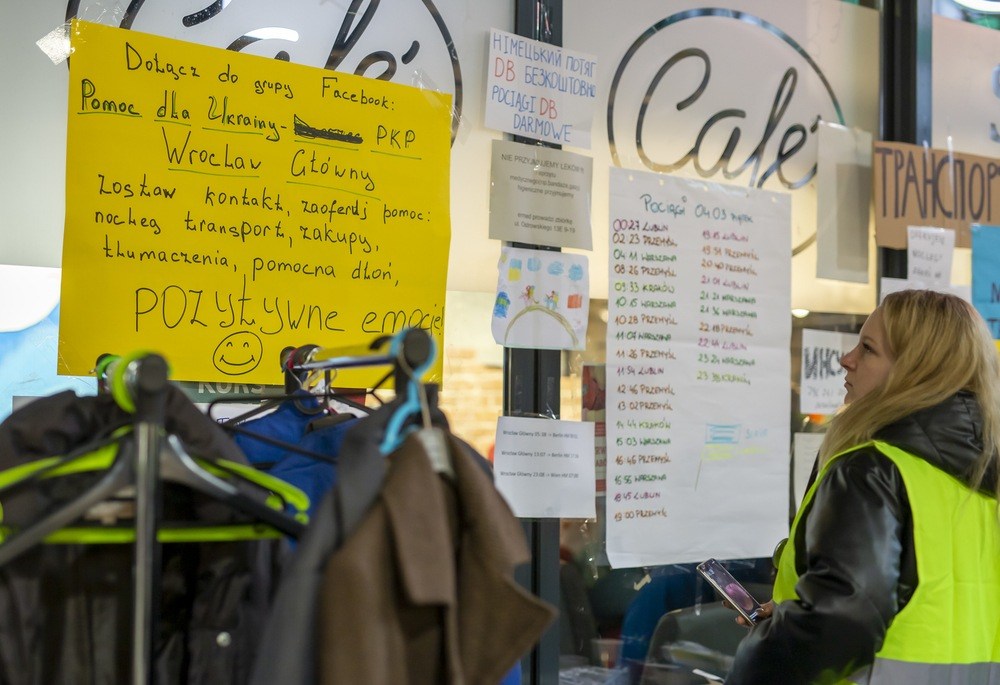 Dołącz do
grupy Facebook:
Pomoc dla Ukrainy - PKP
Wrocław Główny
zostaw kontakt, zaoferuj pomoc:
nocleg, transport, zakupy,
tłumaczenia, pomocna dłoń,
POZYTYWNE emocje
Café
НІМЕЦЬКИЙ ПОТЯГ
DB БЕЗКОШТОВНО
POCIĄGI DB
DARMOWE
NIE PRZYJMUJEMY LEKÓW
Café
Pociągi 04.03 piątek
00:27 LUBLIN
02:23 PRZEMYŚL
04:11 WARSZAWA
08:26 PRZEMYŚL
09:33 KRAKÓW
10:15 WARSZAWA
10:28 PRZEMYŚL
11:07 WARSZAWA
11:26 PRZEMYŚL
11:54 LUBLIN
12:46 PRZEMYŚL
13:02 PRZEMYŚL
14:44 KRAKÓW
15:03 WARSZAWA
16:46 PRZEMYŚL
16:56 WARSZAWA
18:45 LUBLIN
19:00 PRZEMYŚL
19:15 LUBLIN
19:54 PRZEMYŚL
20:40 PRZEMYŚL
21:01 LUBLIN
21:21 WARSZAWA
21:36 WARSZAWA
22:18 PRZEMYŚL
22:44 LUBLIN
23:24 WARSZAWA
23:38 KRAKÓW
ТРАНСПОР